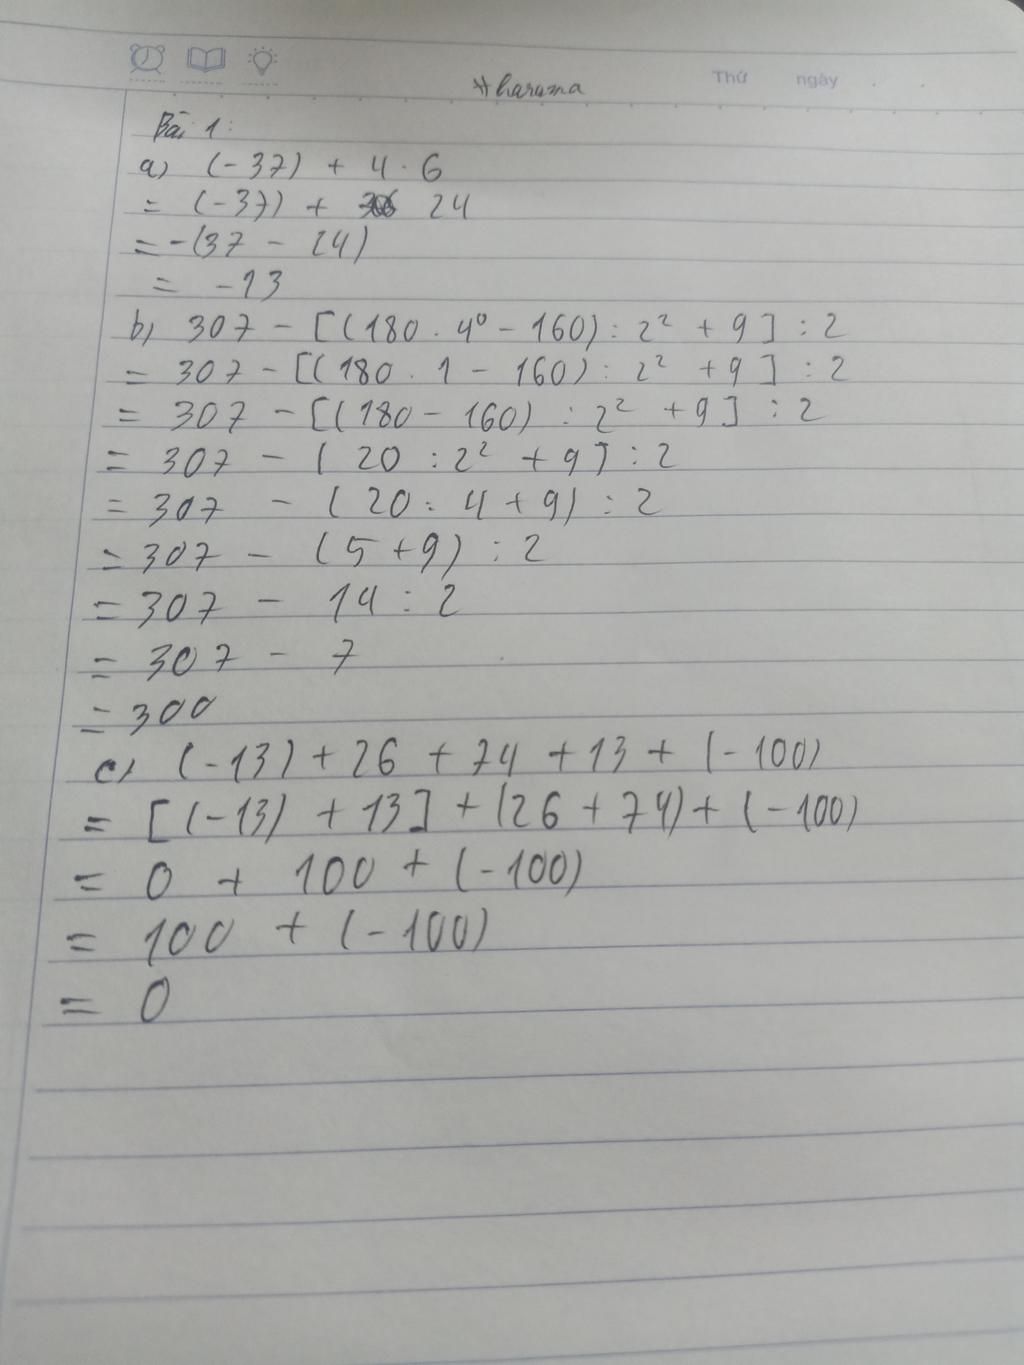 Thứ ngày
Bài 1:
a) (-37) + 4 . 6
= (-37) + 24
= -(37 - 24)
= -13
b) 307 - [(180 . 4⁰ - 160) : 2² + 9] : 2
= 307 - [(180 . 1 - 160) : 2² + 9] : 2
= 307 - [(180 - 160) : 2² + 9] : 2
= 307 - ( 20 : 2² + 9] : 2
= 307 - ( 20 : 4 + 9) : 2
= 307 - (5 + 9) : 2
= 307 - 14 : 2
= 307 - 7
= 300
c) (-13) + 26 + 74 + 13 + (-100)
= [(-13) + 13] + (26 + 74) + (-100)
= 0 + 100 + (-100)
= 100 + (-100)
= 0